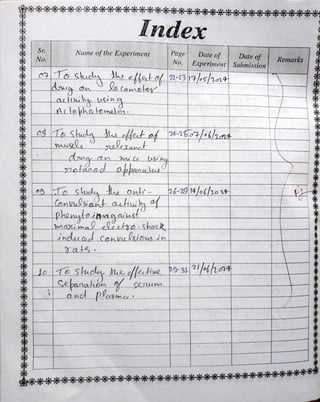 Index
Sr. No. Name of the Experiment Page No. Date of Experiment Date of Submission Remarks
07 To study the effect of 22-23 17/05/2024
drug on locomotor
activity using
Actophotometer.
08 To study the effect of 24-25 07/06/2024
muscle relexant
drug on mice using
rotarod apparatus
09 To study the anti- 26-28 14/06/2024
convulsant activity of
phenytoin against
maximal electro-shock
induced convulsions in
rats.
10 To study the effective 29-31 21/06/2024
separation of serum
and plasma.